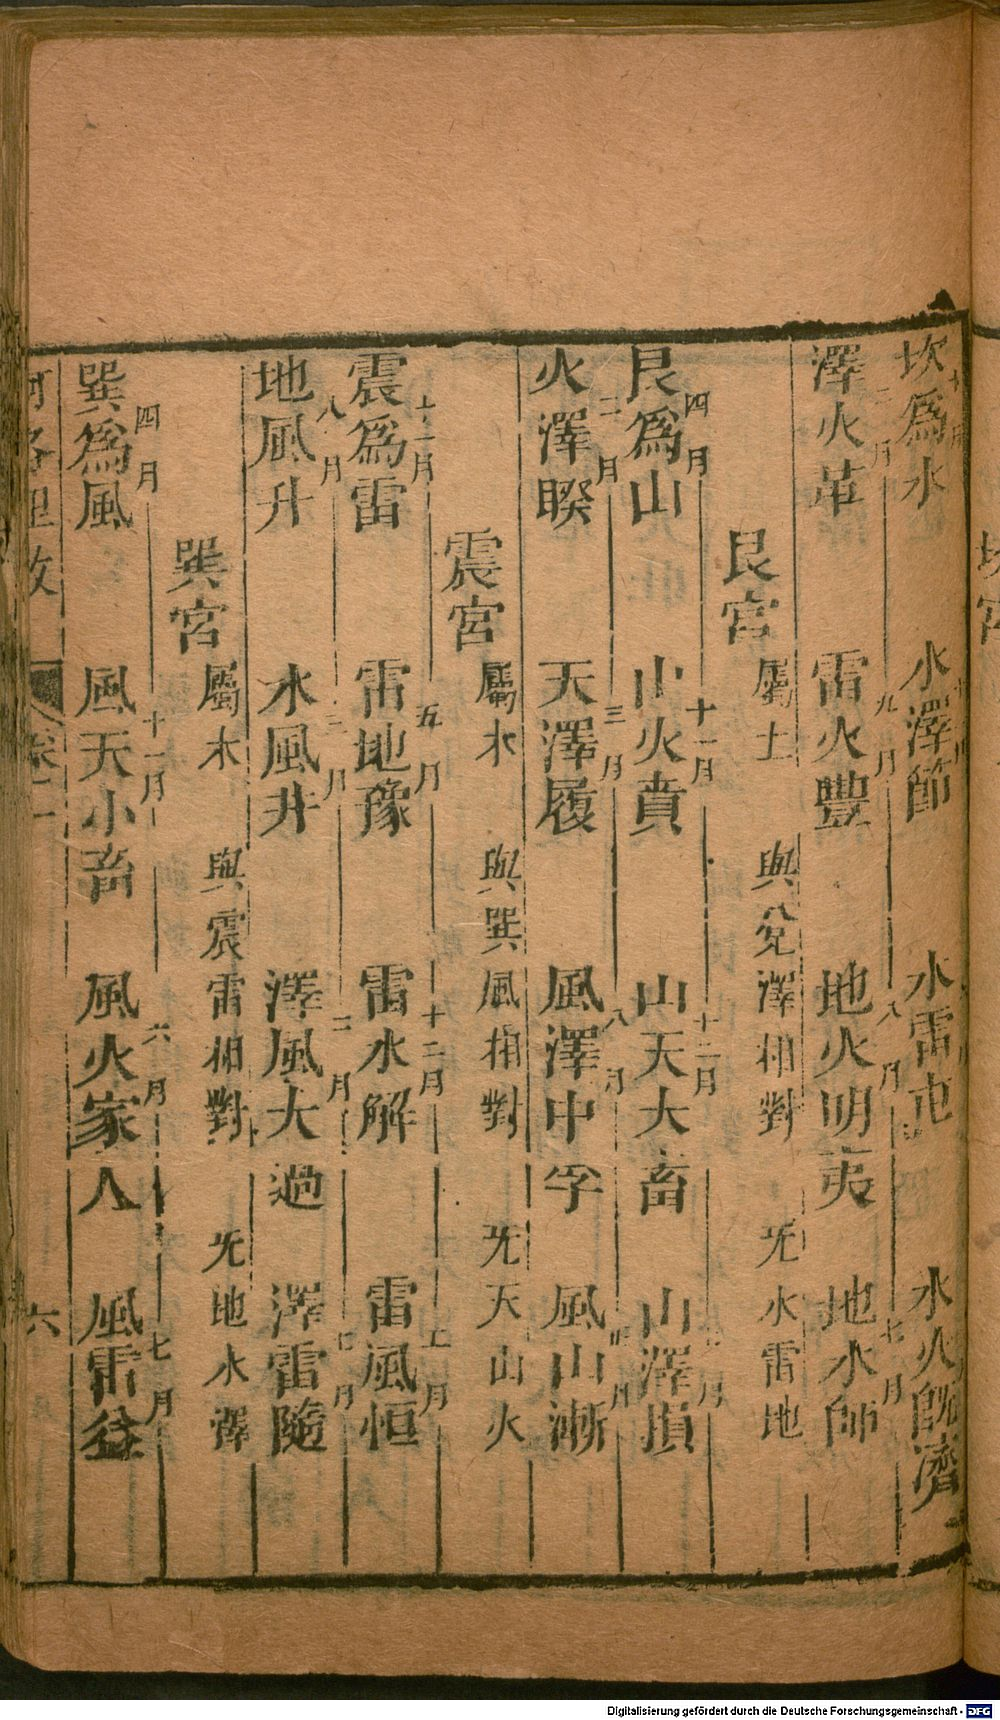 坎為水　水澤節　水雷屯　水火旣濟
二月　九月　八月　七月
澤火革　雷火豐　地火明夷　地水師
艮宮　屬土　與兌澤相對　旡水雷地
四月　十一月　十二月　月
艮為山　山火賁　山天大畜　山澤損
二月　三月　八月　月
火澤睽　天澤履　風澤中孚　風山漸
震宮　屬木　與巽風相對　旡天山火
十一月　五月　十二月　月
震為雷　雷地豫　雷水解　雷風恒
八月　三月　二月　七月
地風升　水風井　澤風大過　澤雷隨
巽宮　屬木　與震雷相對　旡地水澤
四月　十一月　六月　七月
巽為風　風天小畜　風火家人　風雷益
河洛理數　卷二　六